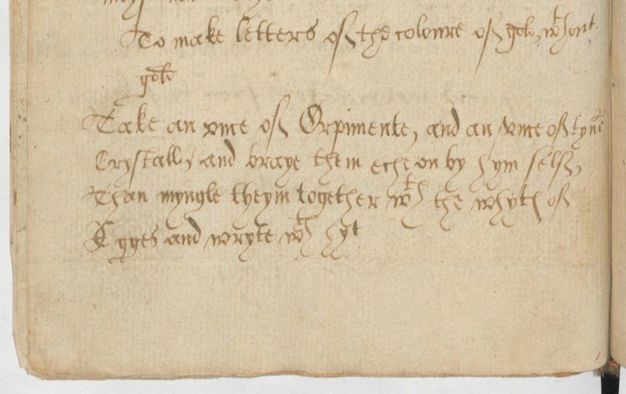 To make letters of the coloure of gold wt hout
gold
Take an unce of Orpimente, and an unce of fyne
Crystall, and braye them eche on by hym self,
Than myngle theym together wth the whyth of
Egges and wryte wth hyt